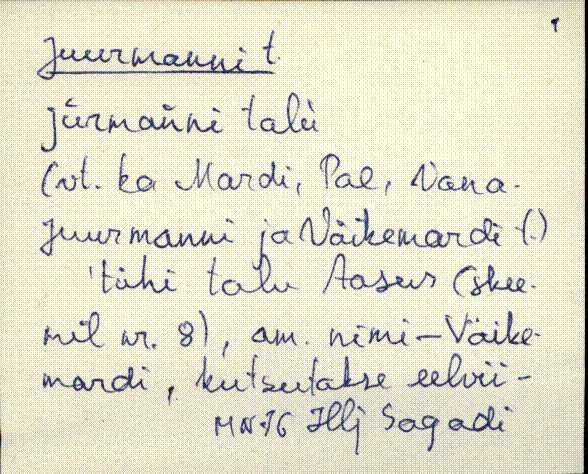 Juurmanni t.
jūrmaǹni talù
(vt. ka Mardi, Pae, Vana-
Juurmanni ja Väikemardi t.)
'tühi talu Aasus (skee-
mil nr. 8), am. nimi – Väike-
mardi, kutsutakse eelvii-
MN-76 Hlj Sagadi